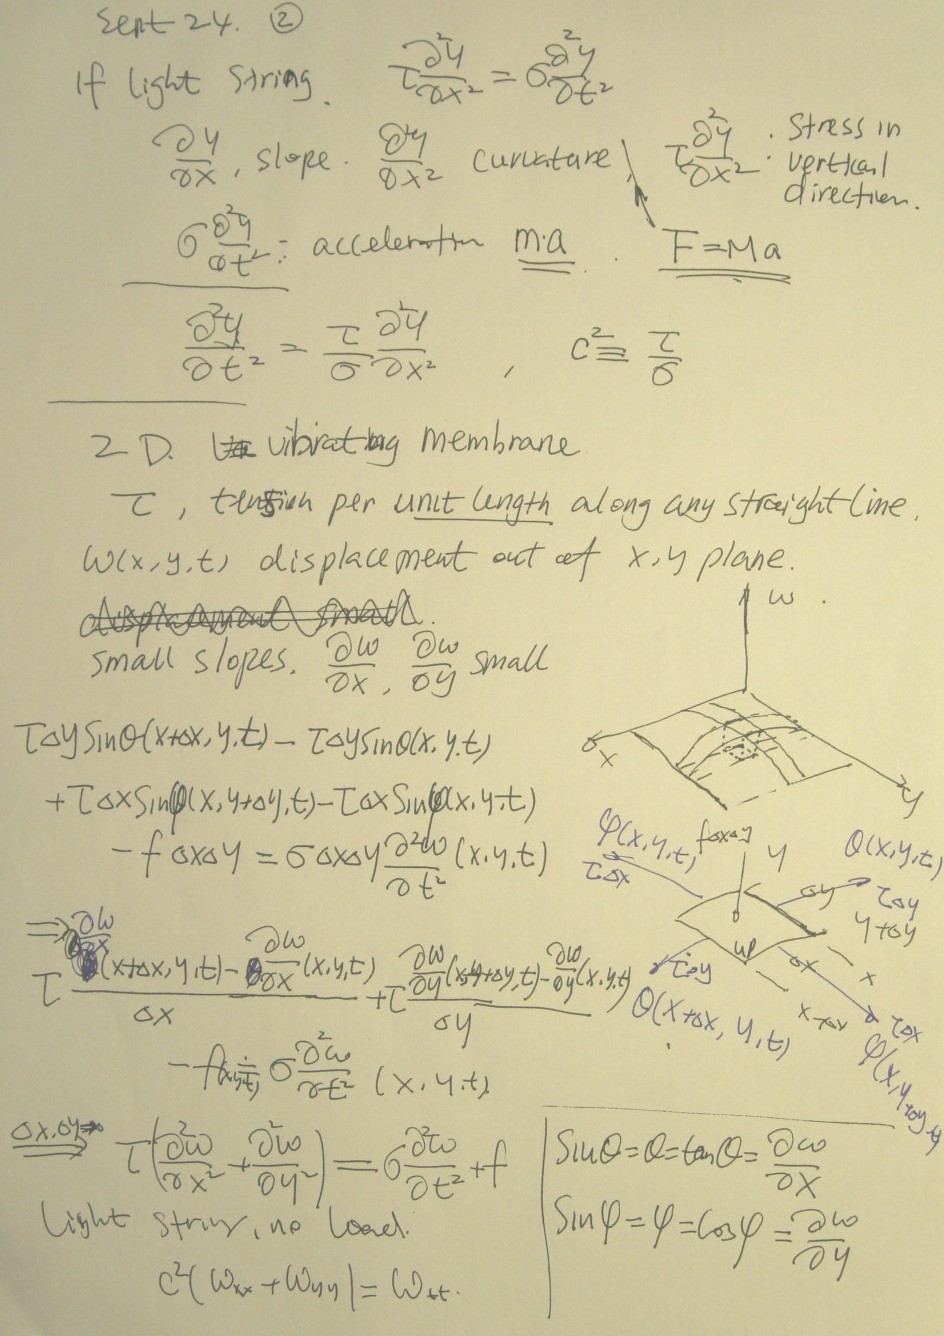 Sept 24. ②
If light string. τ ∂²y/∂x² = σ ∂²y/∂t²
∂y/∂x, slope. ∂²y/∂x² curvature, τ ∂²y/∂x² : stress in vertical direction.
σ ∂²y/∂t² : acceleration m·a . F=Ma
∂²y/∂t² = τ/σ ∂²y/∂x² , c² ≡ τ/σ
2D. vibrating membrane
τ, tension per unit length along any straight line.
w(x,y,t) displacement out of x,y plane.
displacement small.
small slopes. ∂w/∂x, ∂w/∂y small
w
x
y
τΔy sinθ(x+Δx,y,t) - τΔy sinθ(x,y,t)
+ τΔx sinφ(x,y+Δy,t) - τΔx sinφ(x,y,t)
- f ΔxΔy = σΔxΔy ∂²w/∂t² (x,y,t)
φ(x,y,t) fΔxΔy y θ(x,y,t)
τΔx Δy τΔy
y+Δy
τΔy Δx x
θ(x+Δx, y, t) τΔx
φ(x,y+Δy,t)
⇒ τ (∂w/∂x (x+Δx,y,t) - ∂w/∂x (x,y,t))/Δx + τ (∂w/∂y (x,y+Δy,t) - ∂w/∂y (x,y,t))/Δy
- f(x,y,t) = σ ∂²w/∂t² (x,y,t)
Δx,Δy→0 τ(∂²w/∂x² + ∂²w/∂y²) = σ ∂²w/∂t² + f
Light string, no load.
c²(Wxx + Wyy) = Wtt.
Sinθ = θ = tanθ = ∂w/∂x
Sinφ = φ = cosφ = ∂w/∂y